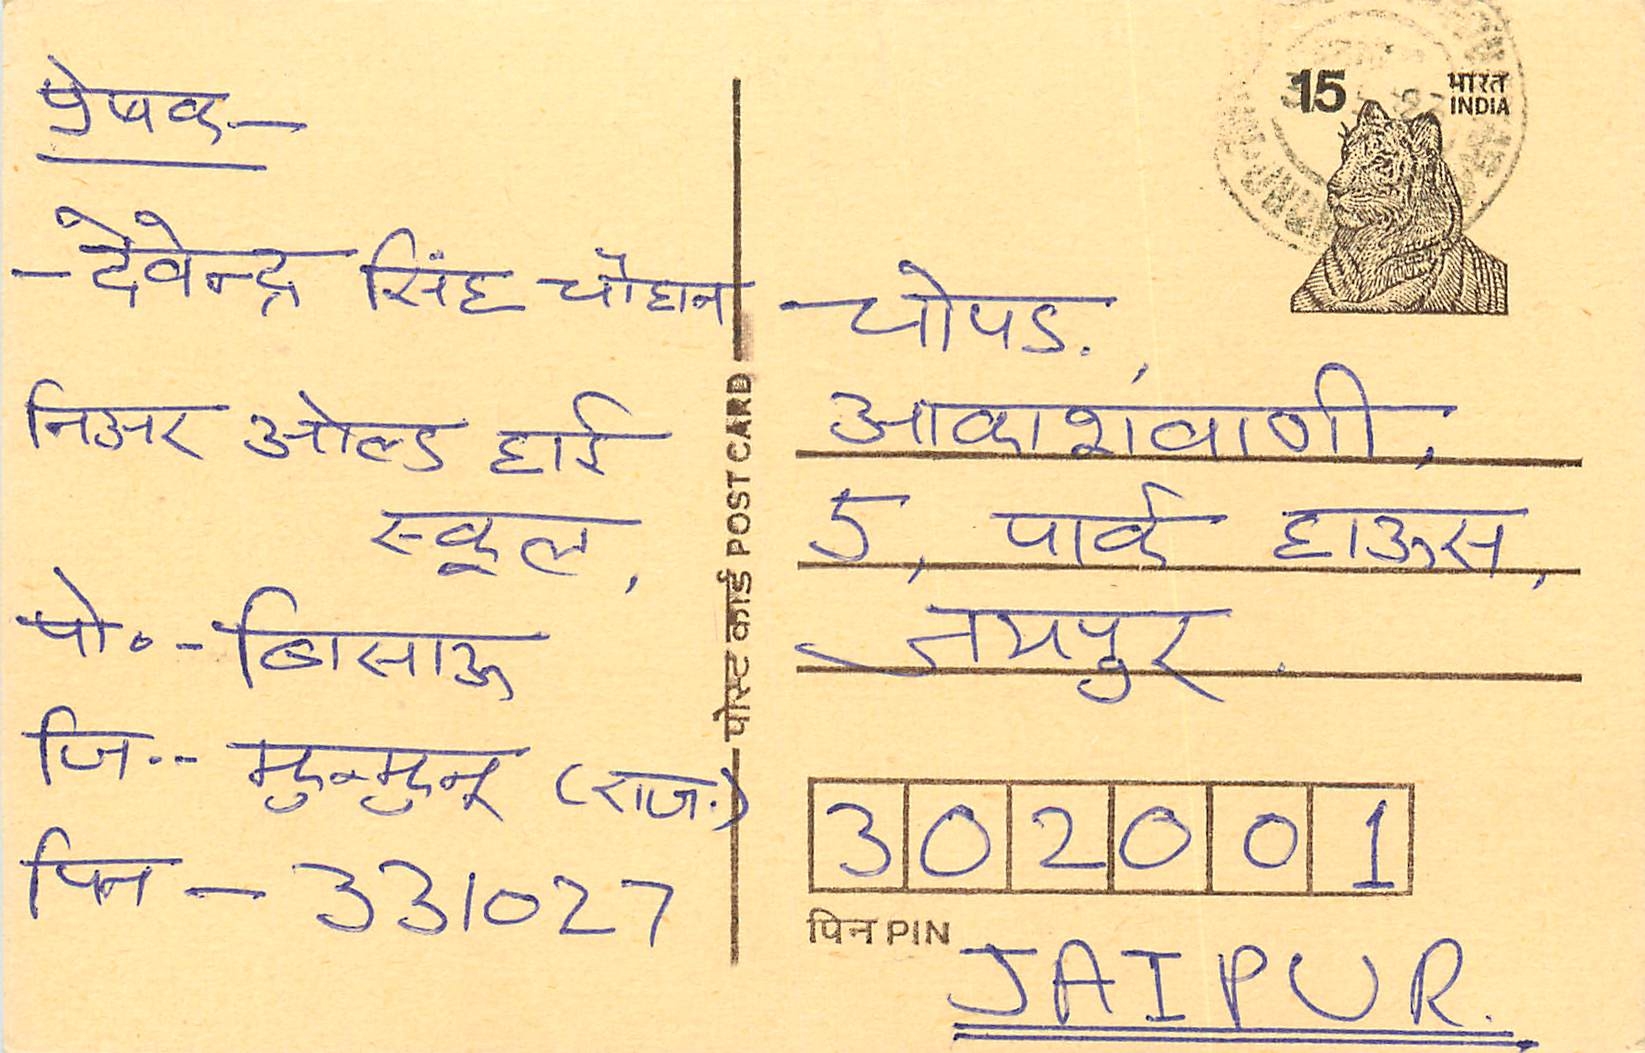 प्रेषक—
—देवेन्द्र सिंह चौहान
निअर ओल्ड हाई
स्कूल,
पो०-बिसाऊ
जि.-- झुन्झुनू (राज.)
पिन — 331027
पोस्ट कार्ड POST CARD
15 भारत
INDIA
चौपड.,
आकाशवाणी,
5, पार्क हाऊस,
जयपुर.
302001
पिन PIN
JAIPUR.